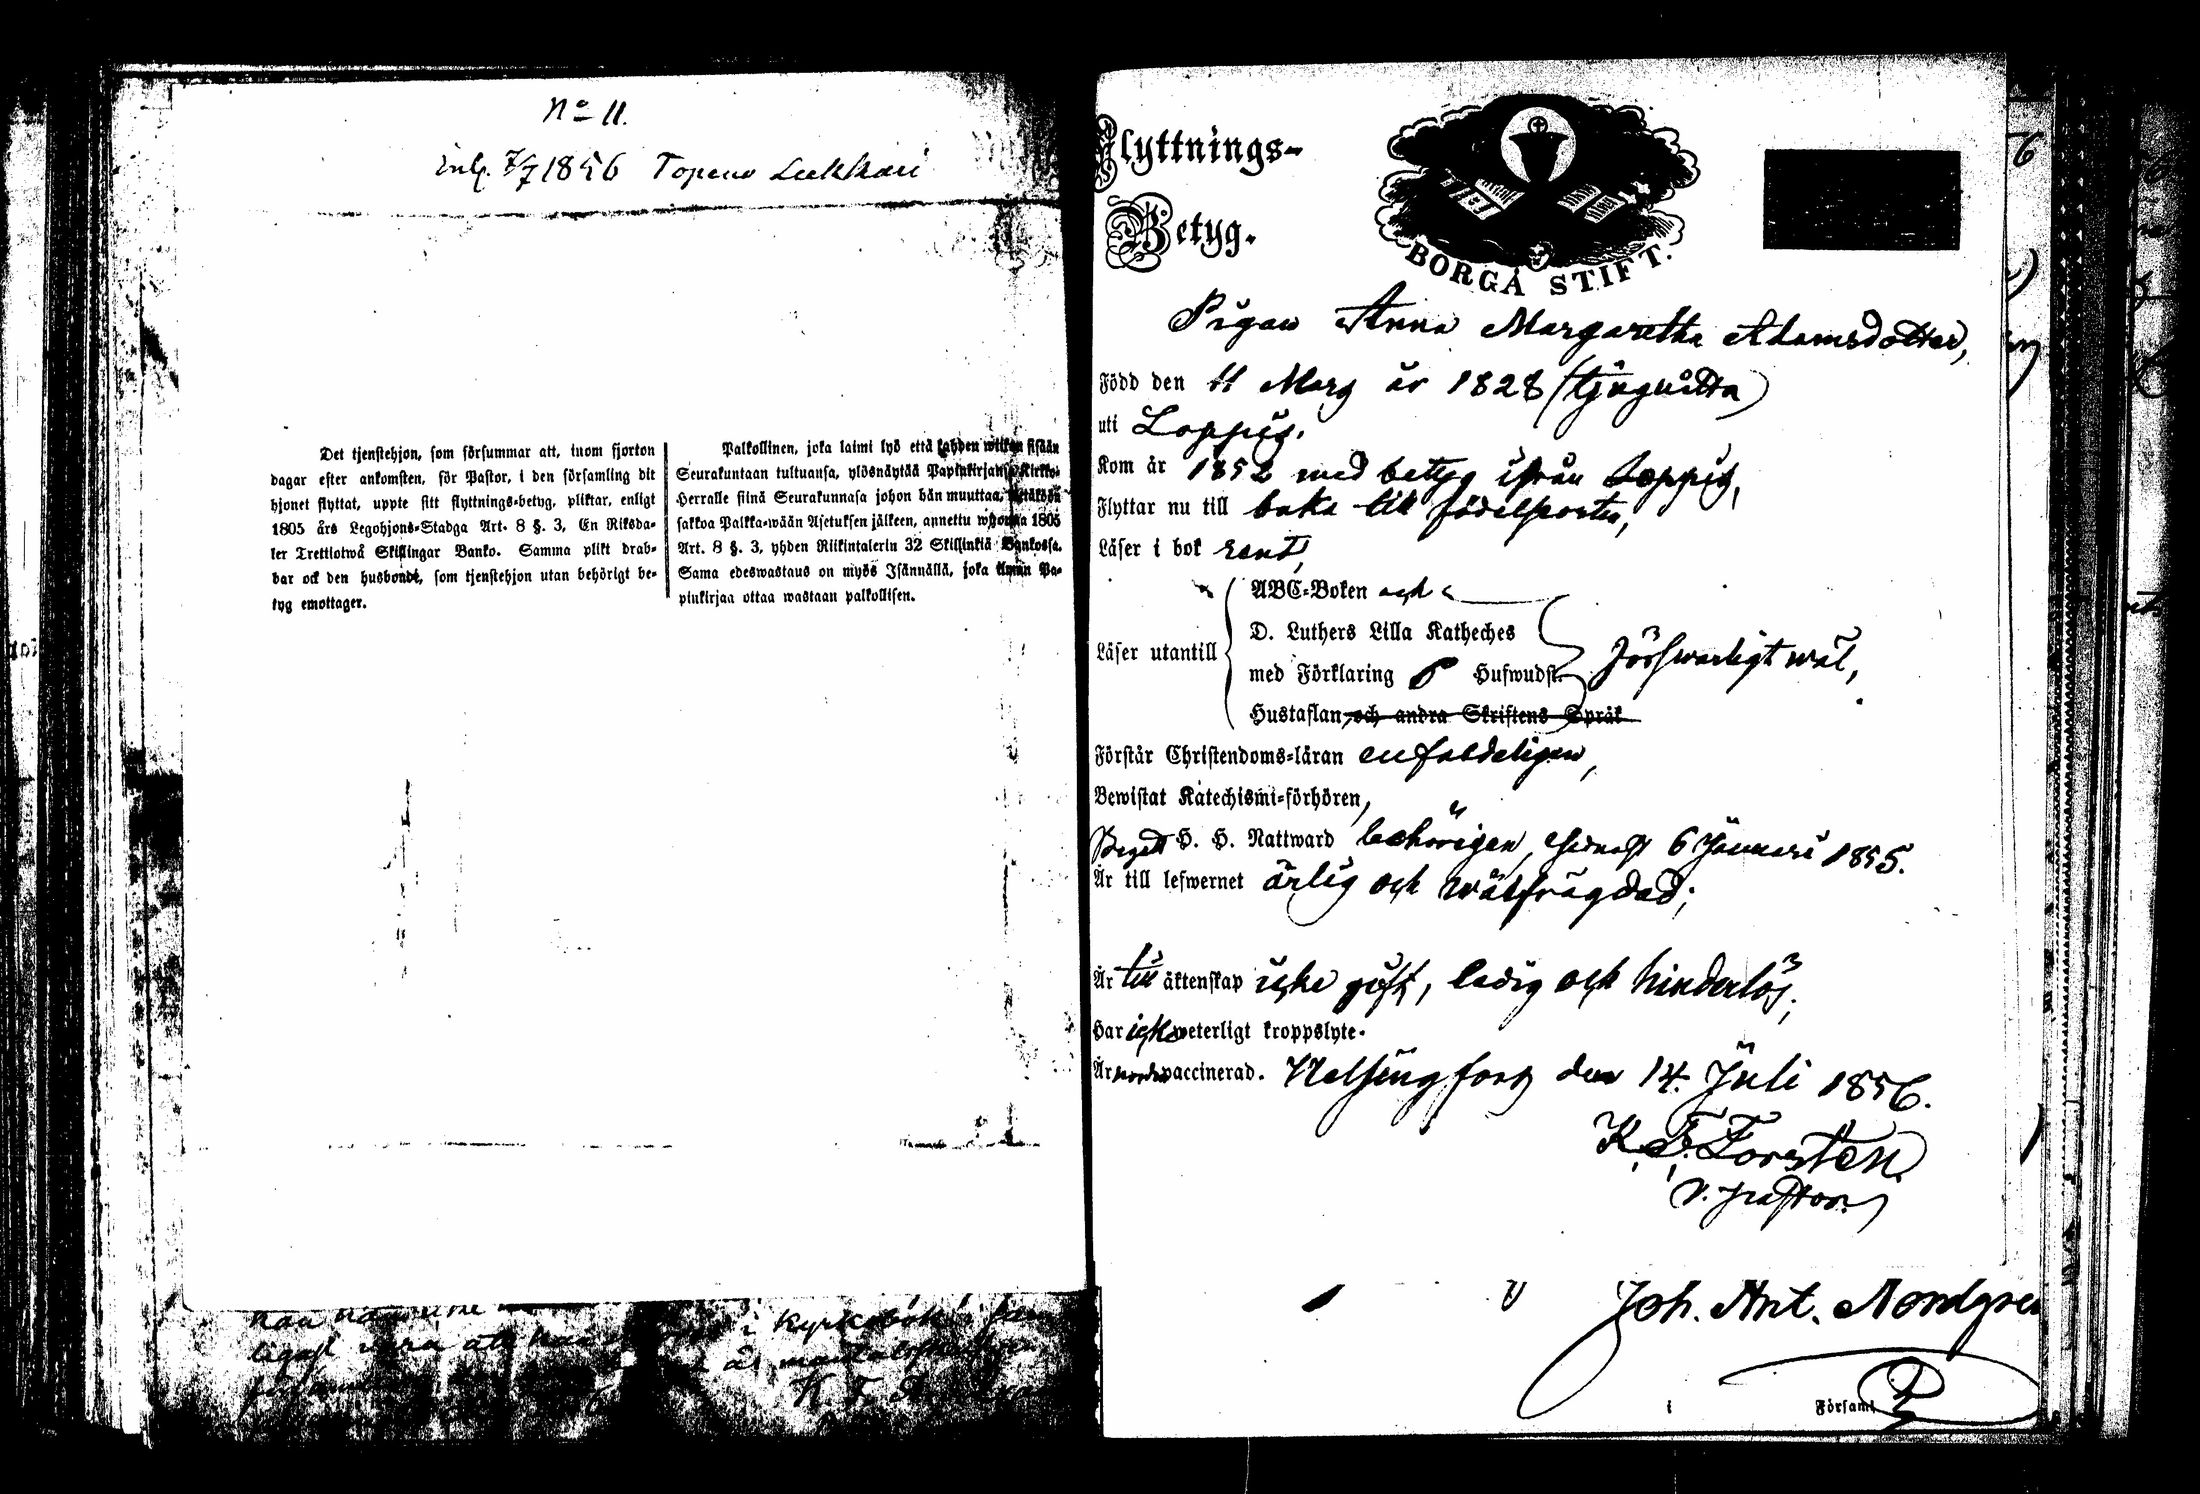 No 11.
inl. 7/7 1856 Topeno Lukkari
Det tjenstehjon, som försummar att, inom fjorton
dagar efter ankomsten, för Pastor, i den församling dit
hjonet flyttat, uppte sitt flyttnings-betyg, pliktar, enligt
1805 års Legohjons-Stadga Art. 8 §. 3, En Riksda-
ler Trettiotwå Skillingar Banko. Samma plikt drab-
bar ock den husbonde, som tjenstehjon utan behörigt be-
tyg emottager.
Palkollinen, joka laimi lyö että kahden wiikon sisään
Seurakuntaan tultuansa, ylösnäytää Papinkirjansa Kirkko-
Herralle siinä Seurakunnasa johon hän muuttaa,
sakkoa Palkka-wään Asetuksen jälkeen, annettu wuonna 1805
Art. 8 §. 3, yhden Riikintalerin 32 Skillinkiä Bankossa.
Sama edeswastaus on myös Isännällä, joka ilman Pa-
pinkirjaa ottaa wastaan palkollisen.
i Kyrkobok
K. F.
Flyttnings-
Betyg.
BORGÅ STIFT.
Pigan Anna Margaretha Adamsdotter,
Född den 11 Mars år 1828 (tjuguåtta)
uti Loppis.
Kom år 1852 med betyg ifrån Loppis,
Flyttar nu till baka till födelseorten,
Läser i bok rent,
Läser utantill
ABC-Boken och
D. Luthers Lilla Katheches
med Förklaring 6 Hufwudst.
Hustaflan och andra Skriftens Språk
försvarligt wäl,
Förstår Christendoms-läran enfaldeligen,
Bewistat Katechismi-förhören,
Begått H. H. Nattward behörigen, senast 6 Januari 1855.
Är till lefwernet ärlig och wälfrägdad;
Är till äktenskap icke gift, ledig och hinderlös;
Har icke weterligt kroppslyte.
Är vaccinerad. Helsingfors den 14. Juli 1856.
K. F. Forstén.
V. Pastor.
Joh. Ant. Nordgren
i Församl